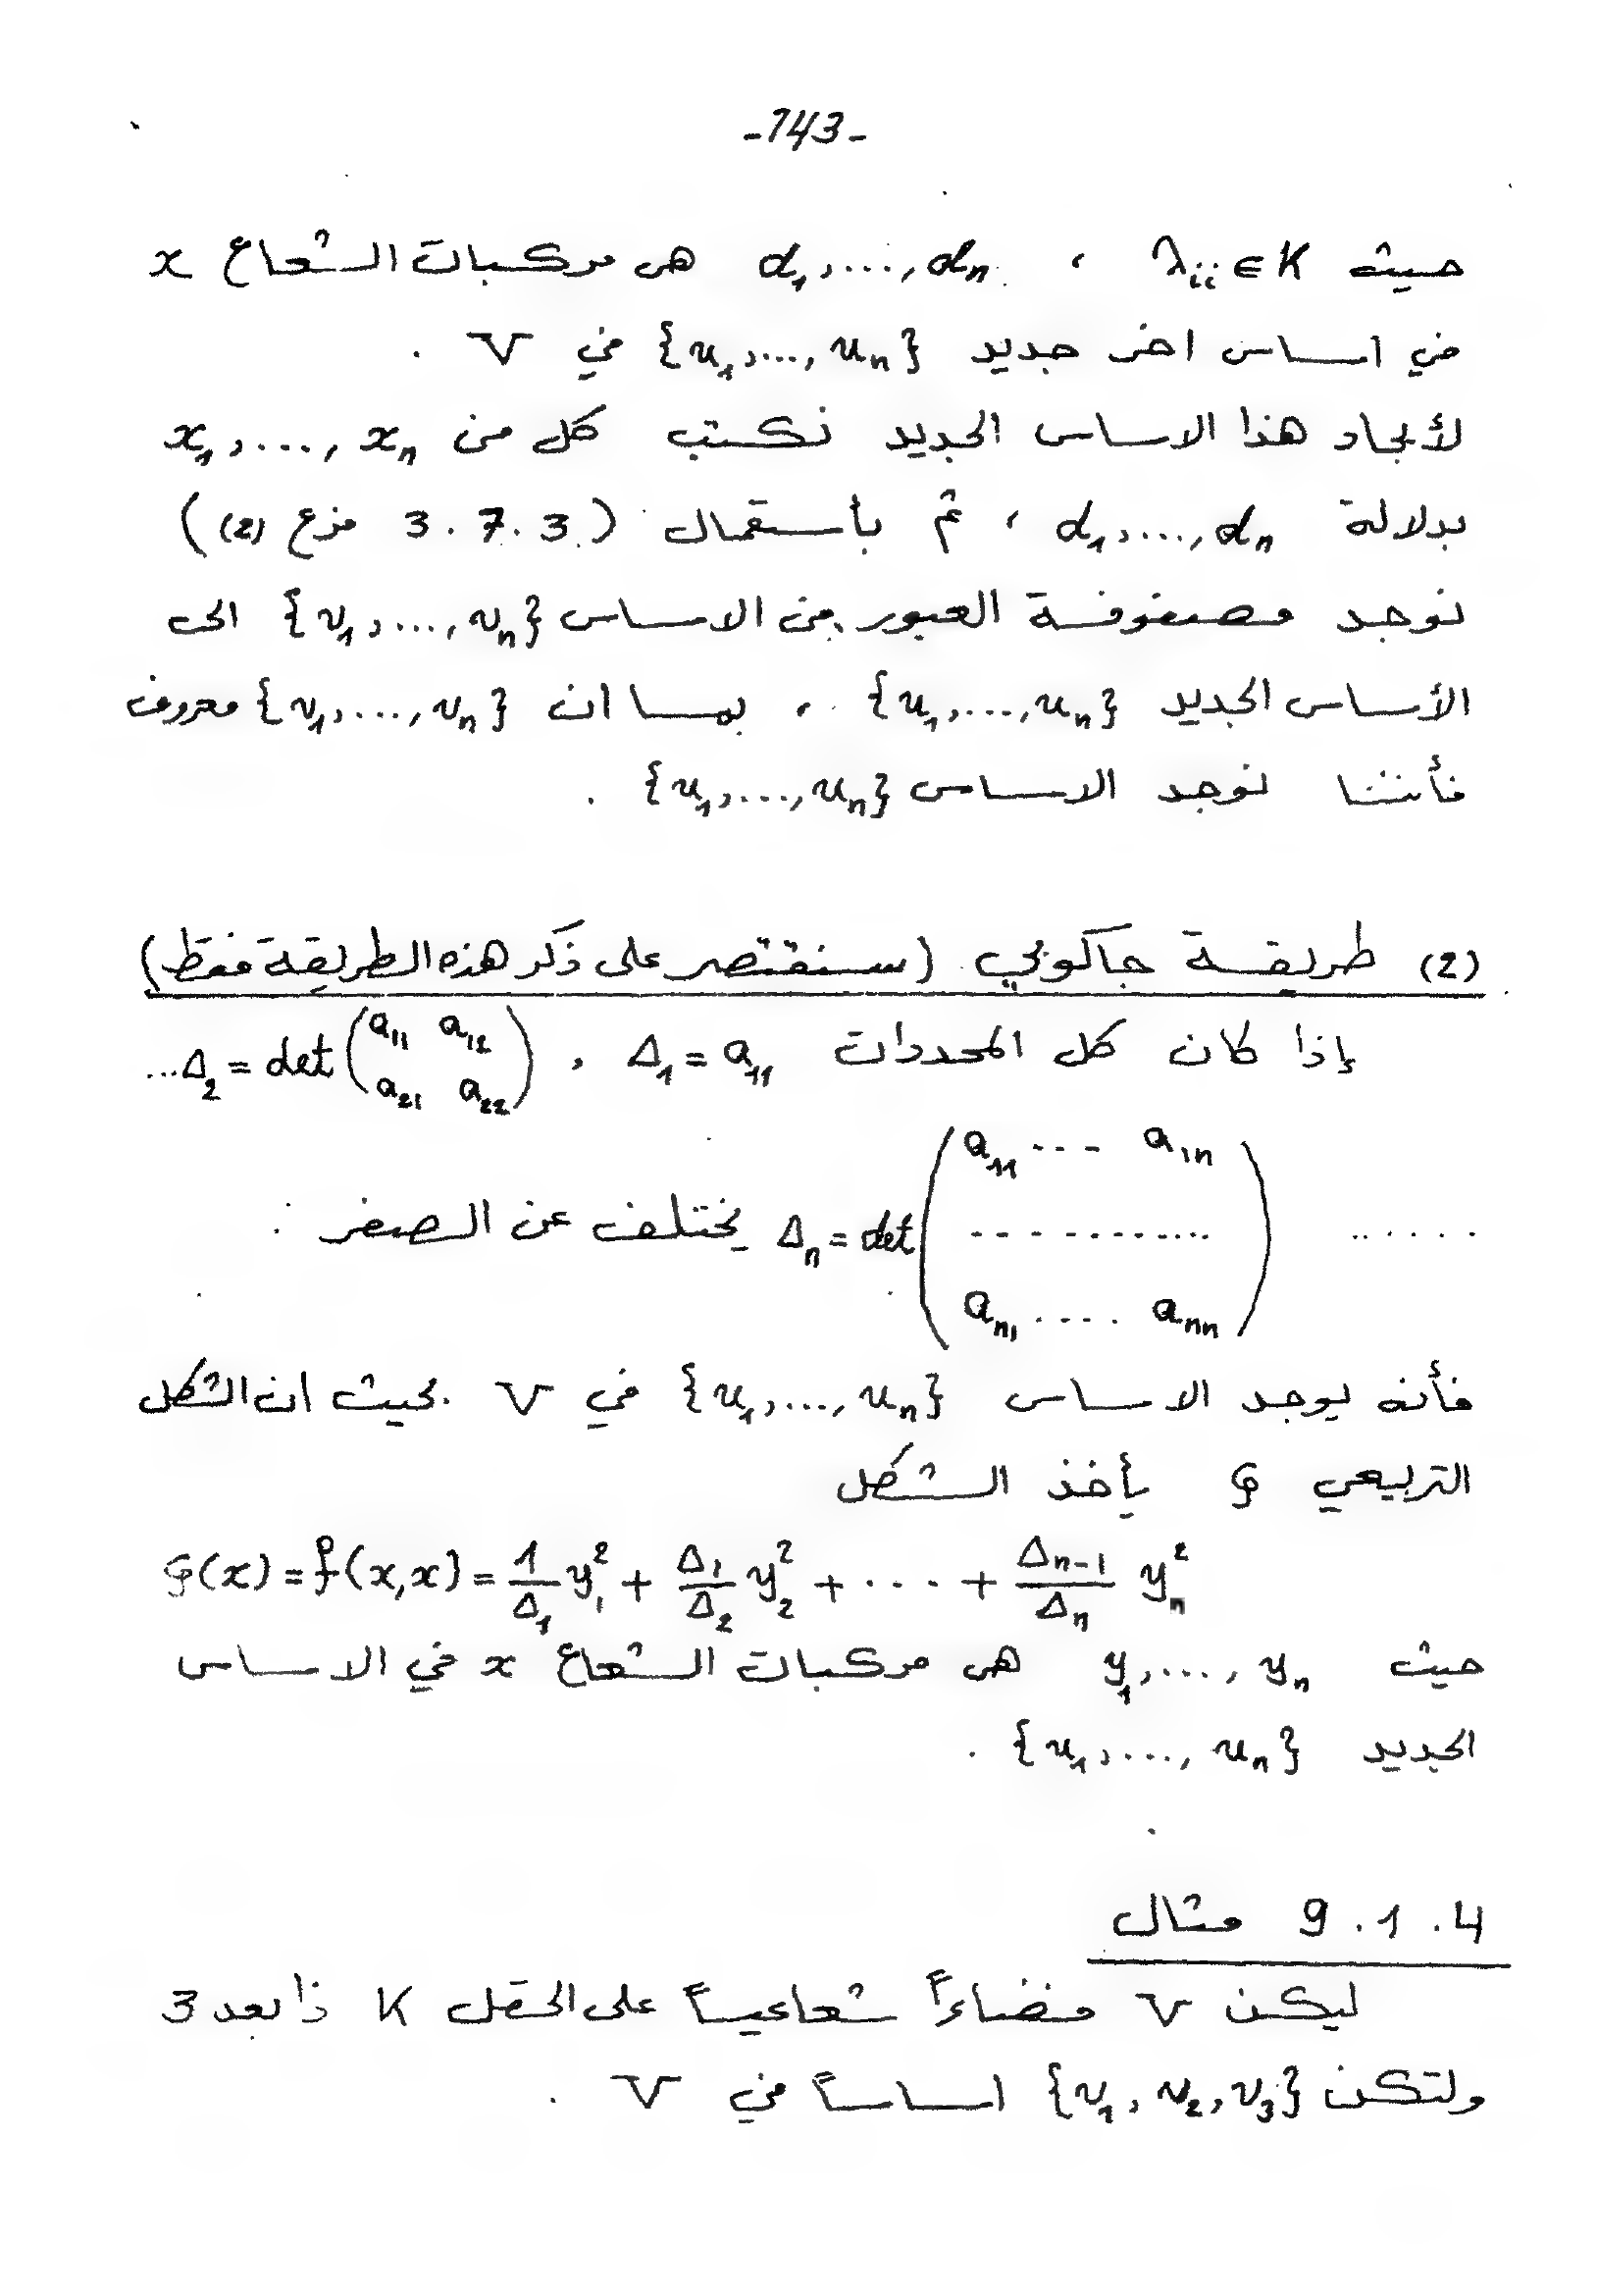 -143-
حيث λᵢᵢ ∈ K ، α₁,...,αₙ هي مركبات الشعاع x
في اساس اخر جديد {u₁,...,uₙ} في V .
لأيجاد هذا الاساس الجديد نكتب كل من x₁,...,xₙ
بدلالة α₁,...,αₙ ، ثم بأستعمال (3.7.3 فرع (2))
نوجد مصفوفة العبور من الاساس {v₁,...,vₙ} الى
الأساس الجديد {u₁,...,uₙ} ، بما ان {v₁,...,vₙ} معروف
فأننا نوجد الاساس {u₁,...,uₙ} .
(2) طريقة جاكوبي (سنقتصر على ذكر هذه الطريقة فقط)
إذا كان كل المحددات Δ₁ = a₁₁ ، Δ₂ = det(a₁₁ a₁₂ ; a₂₁ a₂₂) ...
...... Δₙ = det(a₁₁ ... a₁ₙ ; .......... ; aₙ₁ .... aₙₙ) يختلف عن الصفر :
فأنه يوجد الاساس {u₁,...,uₙ} في V بحيث ان الشكل
التربيعي φ يأخذ الشكل
φ(x) = f(x,x) = 1/Δ₁ y₁² + Δ₁/Δ₂ y₂² + ... + Δₙ₋₁/Δₙ yₙ²
حيث y₁,...,yₙ هي مركبات الشعاع x في الاساس
الجديد {u₁,...,uₙ} .
9.1.4 مثال
ليكن V فضاءاً شعاعياً على الحقل K ذا بعد 3
ولتكن {v₁,v₂,v₃} اساساً في V .